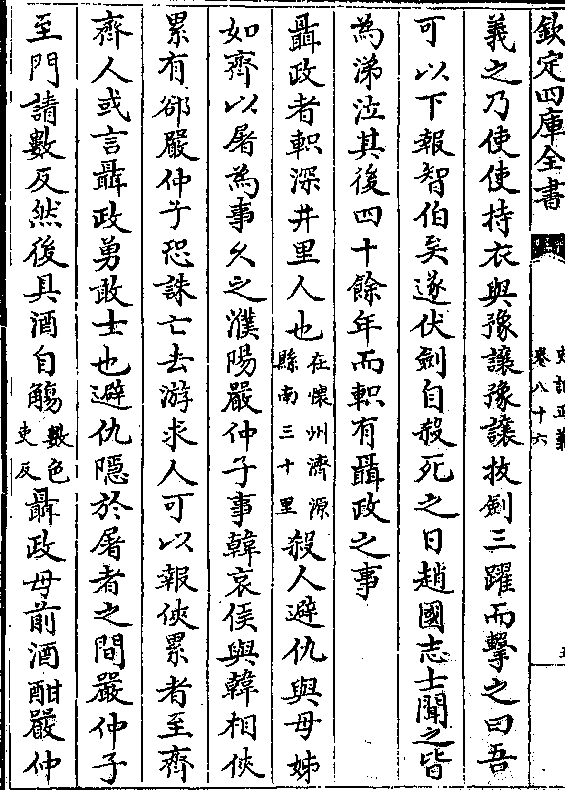 欽定四庫全書
史記正義
卷八十六
五
義之乃使使持衣與豫讓豫讓㧞劍三躍而擊之曰吾
可以下報智伯矣遂伏劍自殺死之日趙國志士聞之皆
為涕泣其後四十餘年而軹有聶政之事
聶政者軹深井里人也在懷州濟源縣南三十里殺人避仇與母姊
如齊以屠為事久之濮陽嚴仲子事韓哀侯與韓相俠
累有郤嚴仲子恐誅亡去游求人可以報俠累者至齊
齊人或言聶政勇敢士也避仇隱於屠者之間嚴仲子
至門請數反然後具酒自觴數色吏反聶政母前酒酣嚴仲